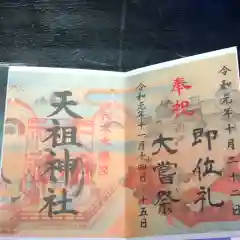 令和元年十月二十二日
即位礼
奉祝
大嘗祭
令和元年十一月十四日・十五日
天祖神社